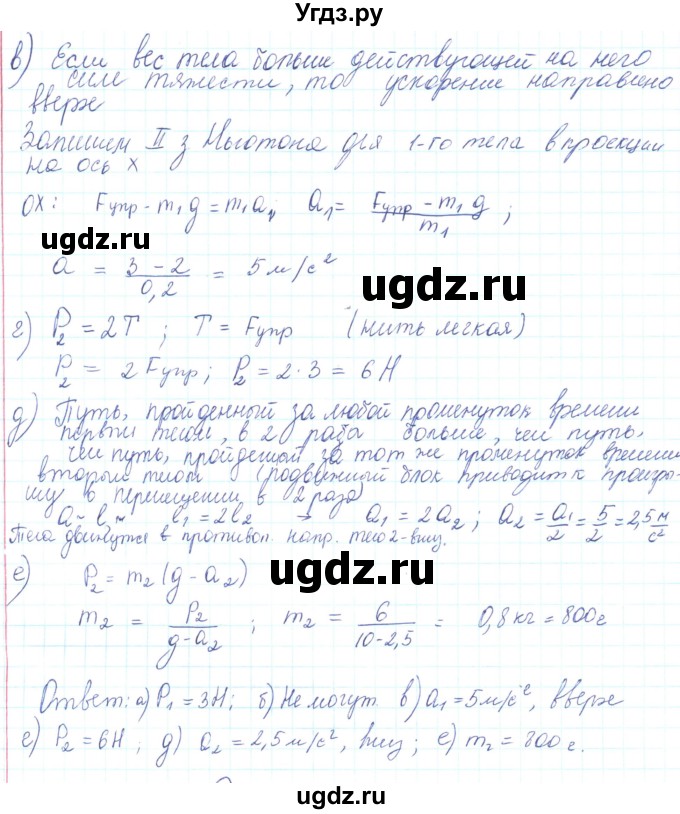 Угдз.ру
в) Если вес тела больше действующей на него
силе тяжести, то ускорение направлено
вверх
Запишем II з Ньютона для 1-го тела в проекции
на ось x
OX: Fупр - m₁g = m₁a₁, a₁ = (Fупр - m₁g)/m₁ ;
ugdz.ru
ugdz.ru
a = (3 - 2)/0,2 = 5 м/с²
г) P₂ = 2T ; T = Fупр (нить легкая)
P₂ = 2Fупр; P₂ = 2·3 = 6 Н
д) Путь, пройденный за любой промежуток времени
первым телом, в 2 раза больше, чем путь,
чем путь, пройденный за тот же промежуток времени
вторым телом (подвижный блок приводит к проигры-
шу в перемещении в 2 раза)
a ~ l, l₁ = 2l₂ → a₁ = 2a₂ ; a₂ = a₁/2 = 5/2 = 2,5 м/с²
Тела движутся в противоп. напр. тело 2 - вниз.
ugdz.ru
е) P₂ = m₂(g - a₂)
m₂ = P₂/(g - a₂) ; m₂ = 6/(10 - 2,5) = 0,8 кг = 800 г
Ответ: а) P₁ = 3Н; б) Не могут в) a₁ = 5 м/с², вверх
г) P₂ = 6Н ; д) a₂ = 2,5 м/с², вниз ; е) m₂ = 800 г.
ugdz.ru
ugdz.ru